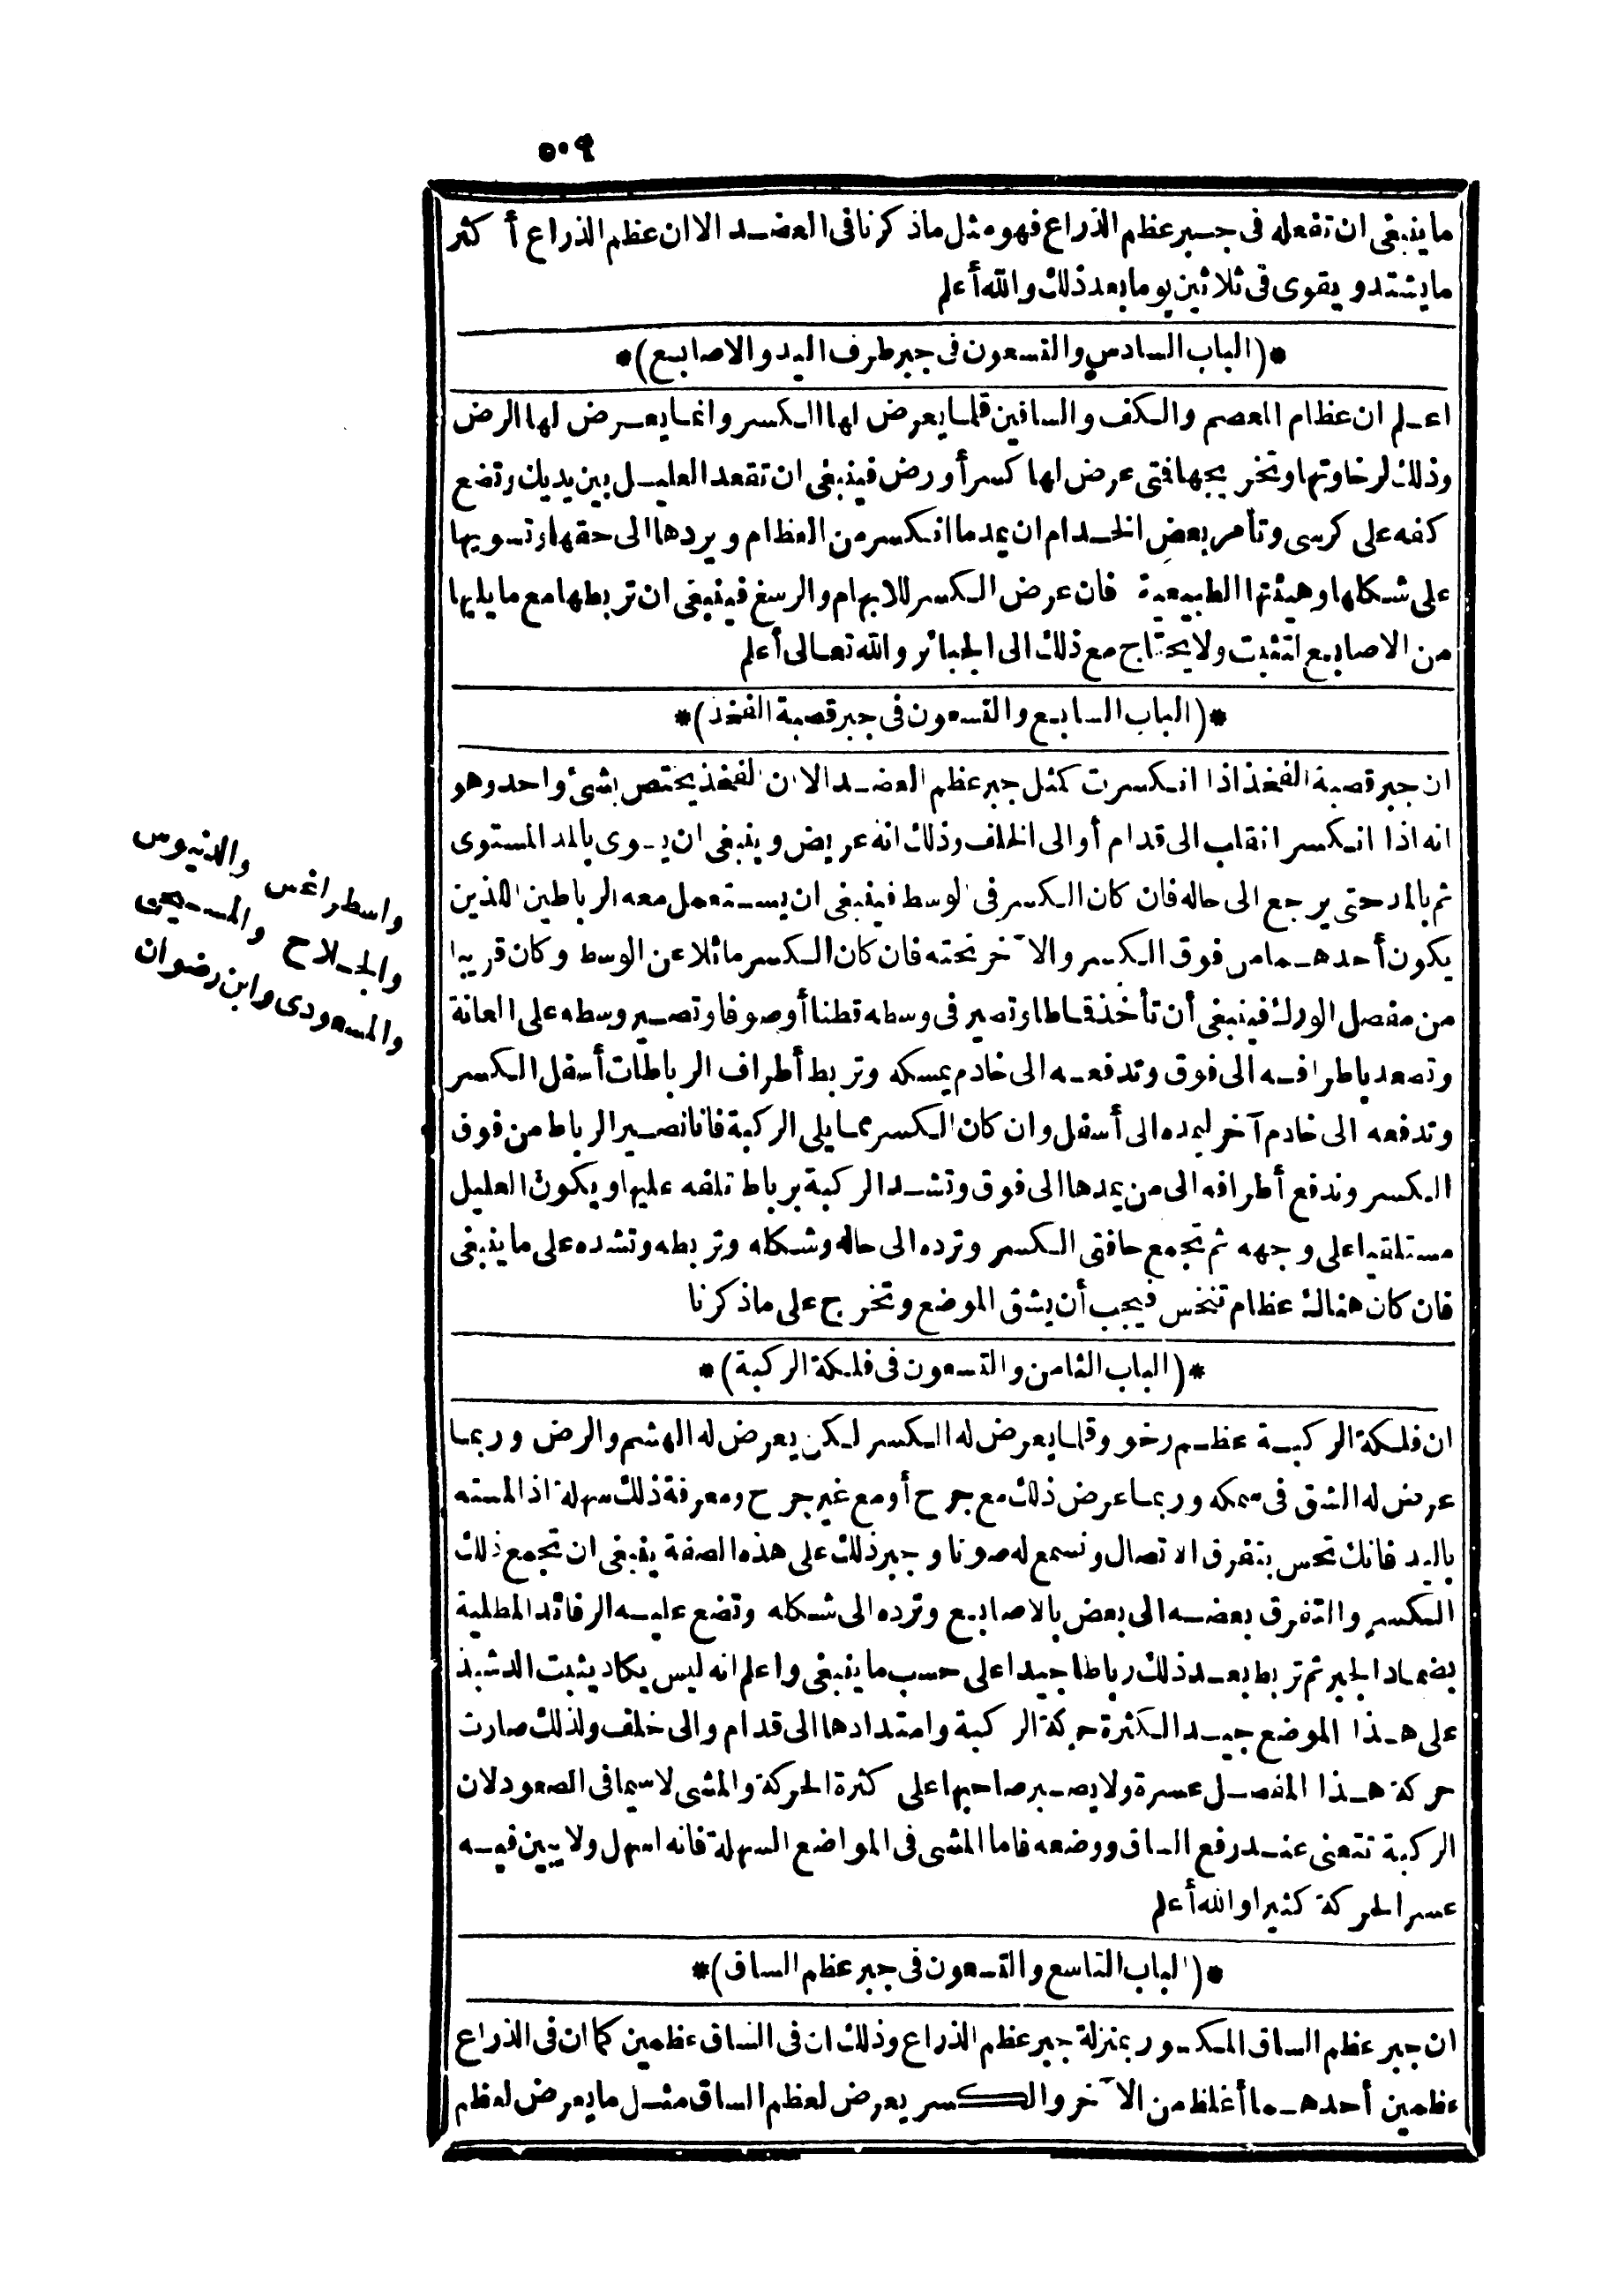 ٥٠٩
ما ينبغى ان تفعله فى جبر عظم الذراع فهو مثل ماذكرنا فى العضد الا ان عظم الذراع أكثر
ما يشتد ويقوى فى ثلاثين يوما بعد ذلك والله أعلم
*(الباب السادس والتسعون فى جبر طرف اليد والاصابع)*
اعلم ان عظام المعصم والكف والسانين قلما يعرض لها الكسر وانما يعرض لها الرض
وذلك لرخاوتها وتخريجها فتى عرض لها كسر أو رض فينبغى ان تقعد العليل بين يديك وتضع
كفه على كرسى وتأمر بعض الخدام ان يمد ما انكسر من العظام ويردها الى حقها وتسويها
على شكلها وهيئتها الطبيعية فان عرض الكسر للابهام والرسغ فينبغى ان تربطها مع ما يليها
من الاصابع لتثبت ولا يحتاج مع ذلك الى الجبائر والله تعالى أعلم
*(الباب السابع والتسعون فى جبر قصبة الفخذ)*
ان جبر قصبة الفخذ اذا انكسرت كمثل جبر عظم العضد الا ان الفخذ يختص بشئ واحد وهو
انه اذا انكسر انقلب الى قدام أو الى الخلف وذلك انه عريض وينبغى ان يسوى بالمد المستوى
ثم بالمد حتى يرجع الى حاله فان كان الكسر فى الوسط فينبغى ان يستعمل معه الرباطين الذين
يكون أحدهما من فوق الكسر والآخر تحته فان كان الكسر مائلا عن الوسط وكان قريبا
من مفصل الورك فينبغى أن تأخذ قماطا وتصير فى وسطه قطنا أو صوفا وتصير وسطه على العانة
وتصعد باطرافه الى فوق وتدفعه الى خادم يمسكه وتربط أطراف الرباطات أسفل الكسر
وتدفعه الى خادم آخر ليمده الى أسفل وان كان الكسر مما يلى الركبة فانا نصير الرباط من فوق
الكسر وندفع أطرافه الى من يمدها الى فوق وتشد الركبة برباط تلفه عليها ويكون العليل
مستلقيا على وجهه ثم تجمع حافتى الكسر وترده الى حاله وشكله وتربطه وتشده على ما ينبغى
فان كان هناك عظام تنخس فيجب أن يشق الموضع وتخرج على ماذكرنا
واسطراغس والدنيوس
والجلاح والمسيحى
والمسعودى وابن رضوان
*(الباب الثامن والتسعون فى فلكة الركبة)*
ان فلكة الركبة عظم رخو وقلما يعرض له الكسر لكن يعرض له الهشم والرض وربما
عرض له الشق فى سمكه وربما عرض ذلك مع جرح أو مع غير جرح ومعرفة ذلك سهلة اذا لمسته
باليد فانك تحس بتفرق الاتصال وتسمع له صوتا وجبر ذلك على هذه الصفة ينبغى ان تجمع ذلك
الكسر والتفرق بعضه الى بعض بالاصابع وترده الى شكله وتضع عليه الرفائد المطلية
بضماد الجبر ثم تربط بعد ذلك رباطا جيدا على حسب ما ينبغى واعلم انه ليس يكاد يثبت الدشبذ
على هذا الموضع جيد الكثرة حركة الركبة وامتدادها الى قدام والى خلف ولذلك صارت
حركة هذا المفصل عسرة ولا يصبر صاحبها على كثرة الحركة والمشى لاسيما فى الصعود لان
الركبة تتعنى عند رفع الساق ووضعه فاما المشى فى المواضع السهلة فانه اسهل ولا يبين فيه
عسر الحركة كثيرا والله أعلم
*(الباب التاسع والتسعون فى جبر عظم الساق)*
ان جبر عظم الساق المكسور بمنزلة جبر عظم الذراع وذلك ان فى الساق عظمين كما ان فى الذراع
عظمين أحدهما أغلظ من الآخر والكسر يعرض لعظم الساق مثل ما يعرض لعظم